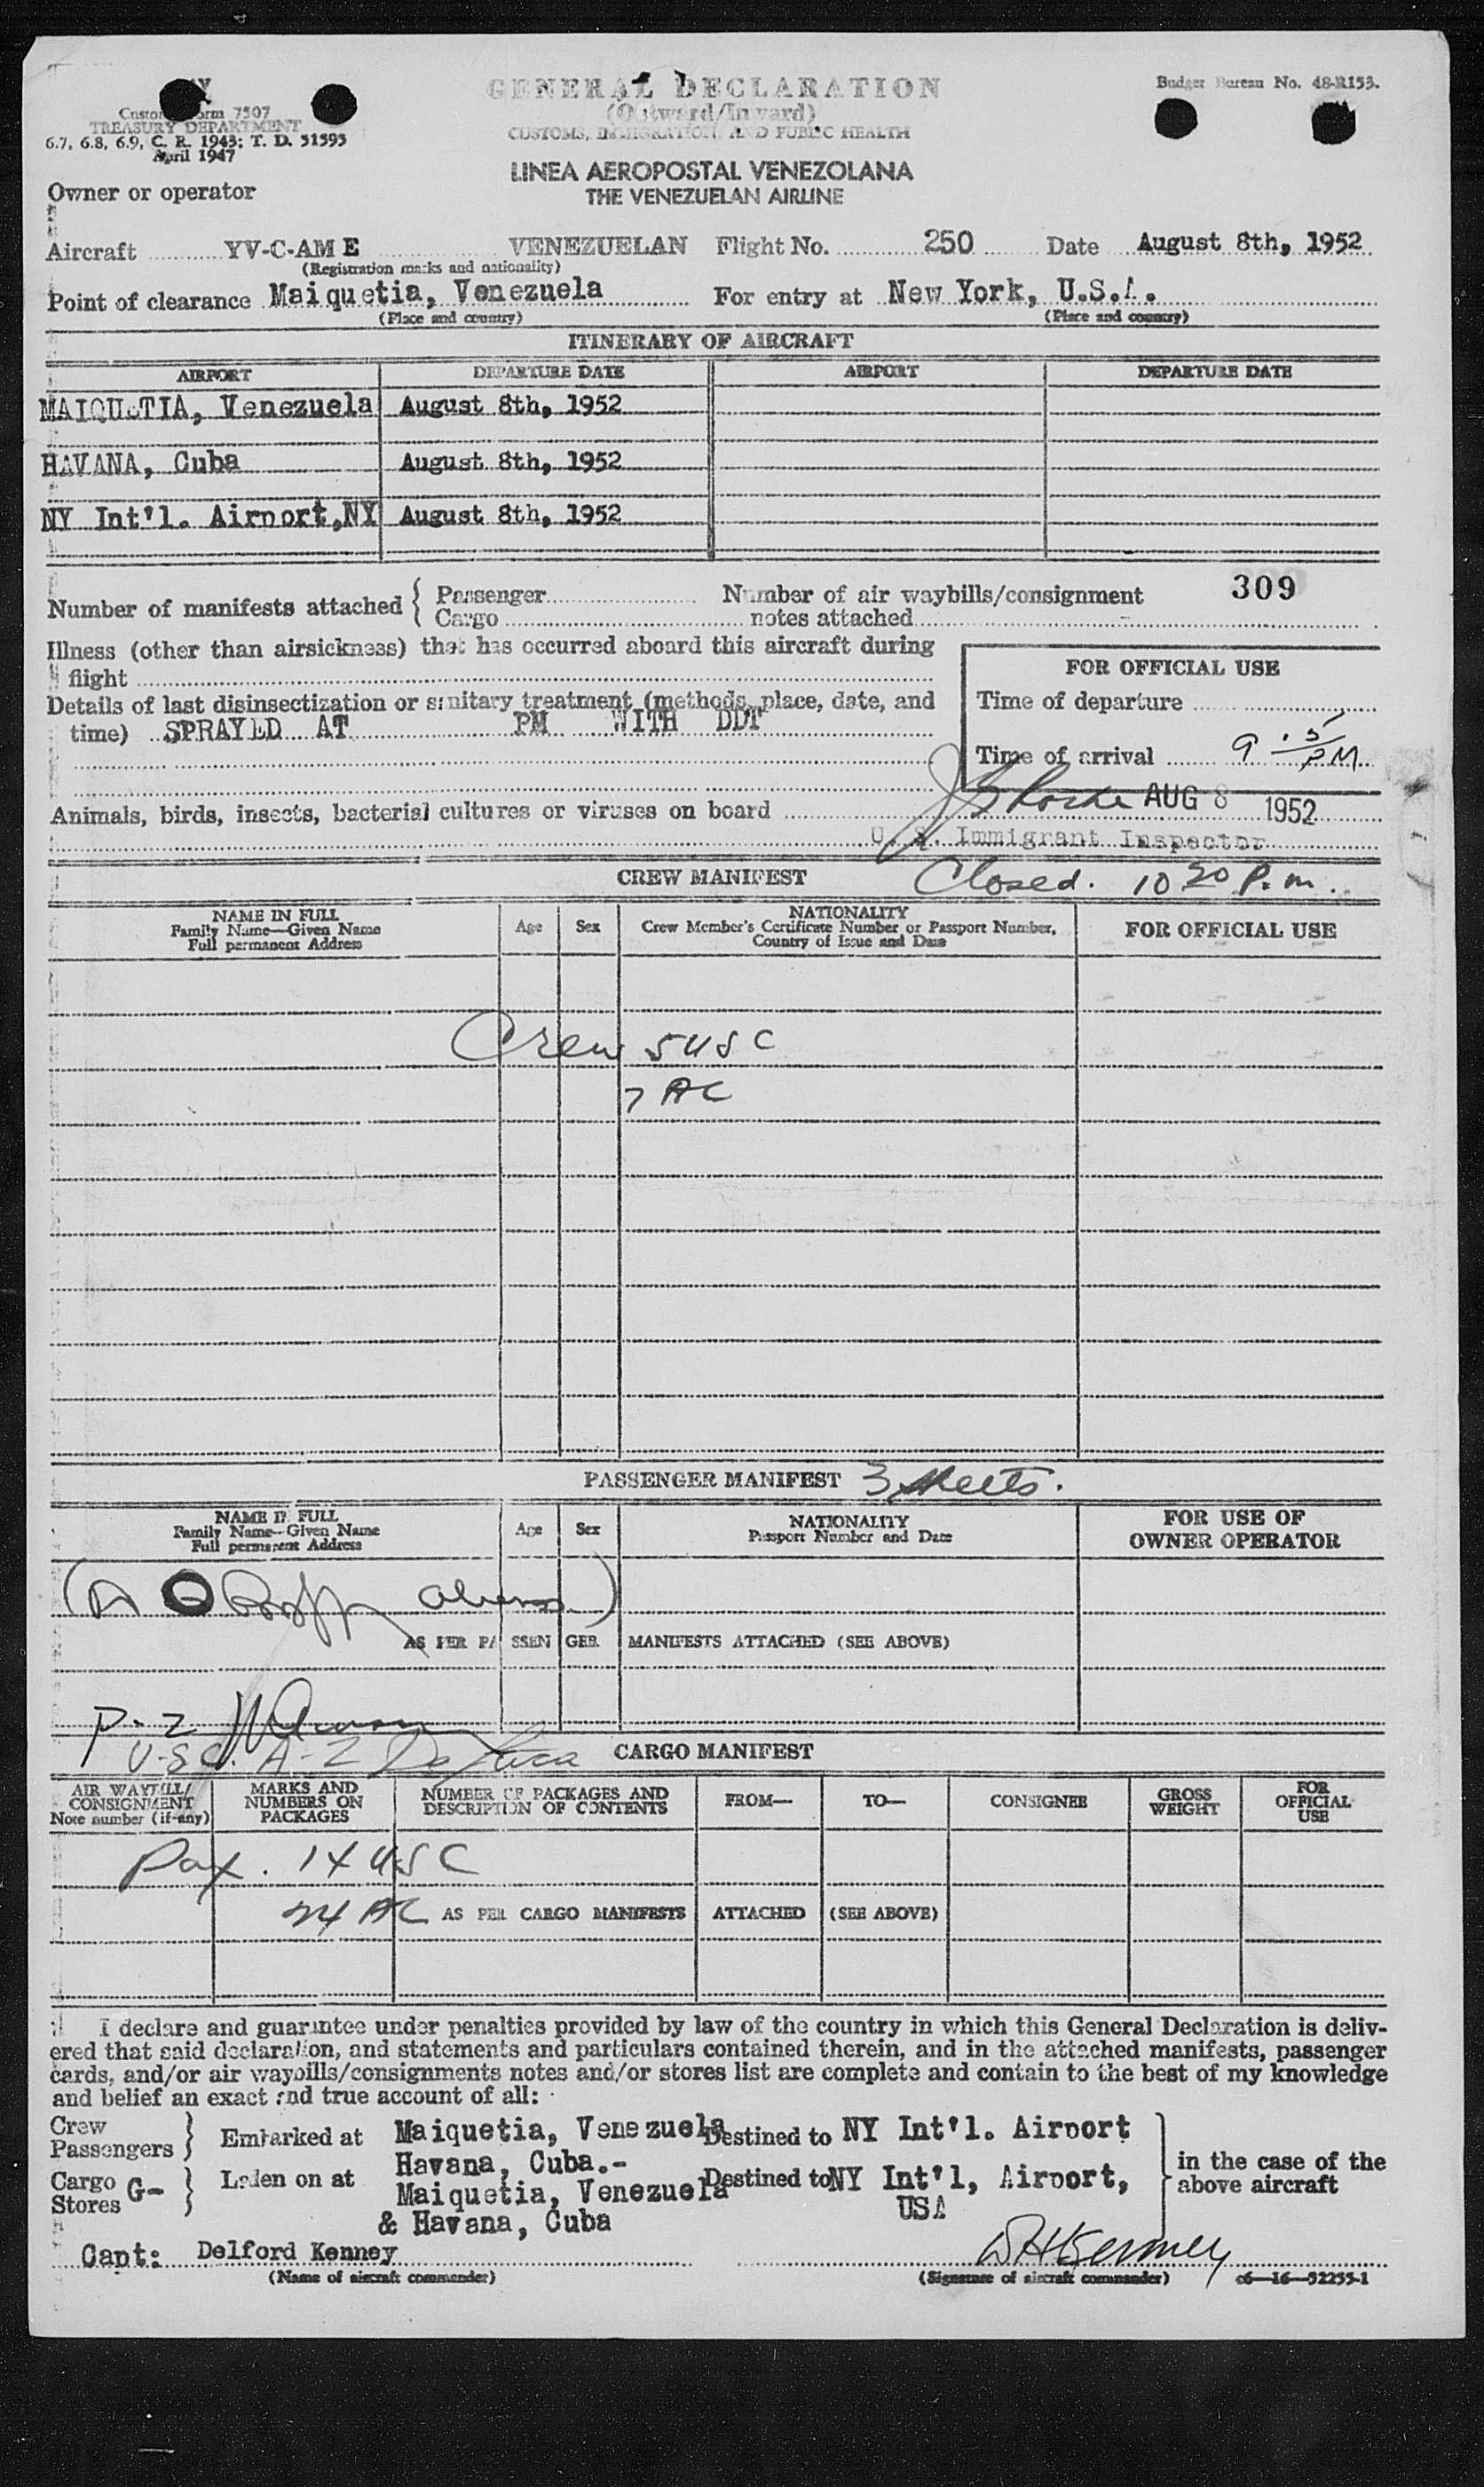 GENERAL DECLARATION
(Outward/Inward)
CUSTOMS, IMMIGRATION, AND PUBLIC HEALTH
Budget Bureau No. 48-R153.
Customs Form 7507
TREASURY DEPARTMENT
6.7, 6.8, 6.9, C. R. 1943; T. D. 51593
April 1947
LINEA AEROPOSTAL VENEZOLANA
THE VENEZUELAN AIRLINE
Owner or operator
Aircraft YV-C-AM E VENEZUELAN Flight No. 250 Date August 8th, 1952
(Registration marks and nationality)
Point of clearance Maiquetia, Venezuela For entry at New York, U.S.A.
(Place and country) (Place and country)
ITINERARY OF AIRCRAFT
AIRPORT DEPARTURE DATE AIRPORT DEPARTURE DATE
MAIQUETIA, Venezuela August 8th, 1952
HAVANA, Cuba August 8th, 1952
NY Int'l. Airport, NY August 8th, 1952
309
Number of manifests attached { Passenger Number of air waybills/consignment
Cargo notes attached
Illness (other than airsickness) that has occurred aboard this aircraft during
flight
FOR OFFICIAL USE
Details of last disinsectization or sanitary treatment (methods, place, date, and
time) SPRAYED AT PM WITH DDT
Time of departure
Time of arrival 9 15 PM
AUG 8 1952
Animals, birds, insects, bacterial cultures or viruses on board
U. S. Immigrant Inspector
CREW MANIFEST Closed. 10 20 P.m.
NAME IN FULL
Family Name—Given Name
Full permanent Address
Age Sex
NATIONALITY
Crew Member's Certificate Number or Passport Number,
Country of Issue and Date
FOR OFFICIAL USE
Crew 5 USC
7 AC
PASSENGER MANIFEST 3 sheets.
NAME IN FULL
Family Name—Given Name
Full permanent Address
Age Sex
NATIONALITY
Passport Number and Date
FOR USE OF
OWNER OPERATOR
AS PER PASSENGER MANIFESTS ATTACHED (SEE ABOVE)
P-2
U-SC. A-2
CARGO MANIFEST
AIR WAYBILL/
CONSIGNMENT
Note number (if any)
MARKS AND
NUMBERS ON
PACKAGES
NUMBER OF PACKAGES AND
DESCRIPTION OF CONTENTS
FROM— TO— CONSIGNEE
GROSS
WEIGHT
FOR
OFFICIAL
USE
Pax. 14 USC
24 AC AS PER CARGO MANIFESTS ATTACHED (SEE ABOVE)
I declare and guarantee under penalties provided by law of the country in which this General Declaration is deliv-
ered that said declaration, and statements and particulars contained therein, and in the attached manifests, passenger
cards, and/or air waybills/consignments notes and/or stores list are complete and contain to the best of my knowledge
and belief an exact and true account of all:
Crew
Passengers } Embarked at Maiquetia, Venezuela Destined to NY Int'l. Airport
Havana, Cuba.-
in the case of the
above aircraft
Cargo
Stores G- } Laden on at Maiquetia, Venezuela Destined to NY Int'l, Airport,
USA
& Havana, Cuba
Capt: Delford Kenney D H Kenney
(Name of aircraft commander) (Signature of aircraft commander) c6—16—52255-1